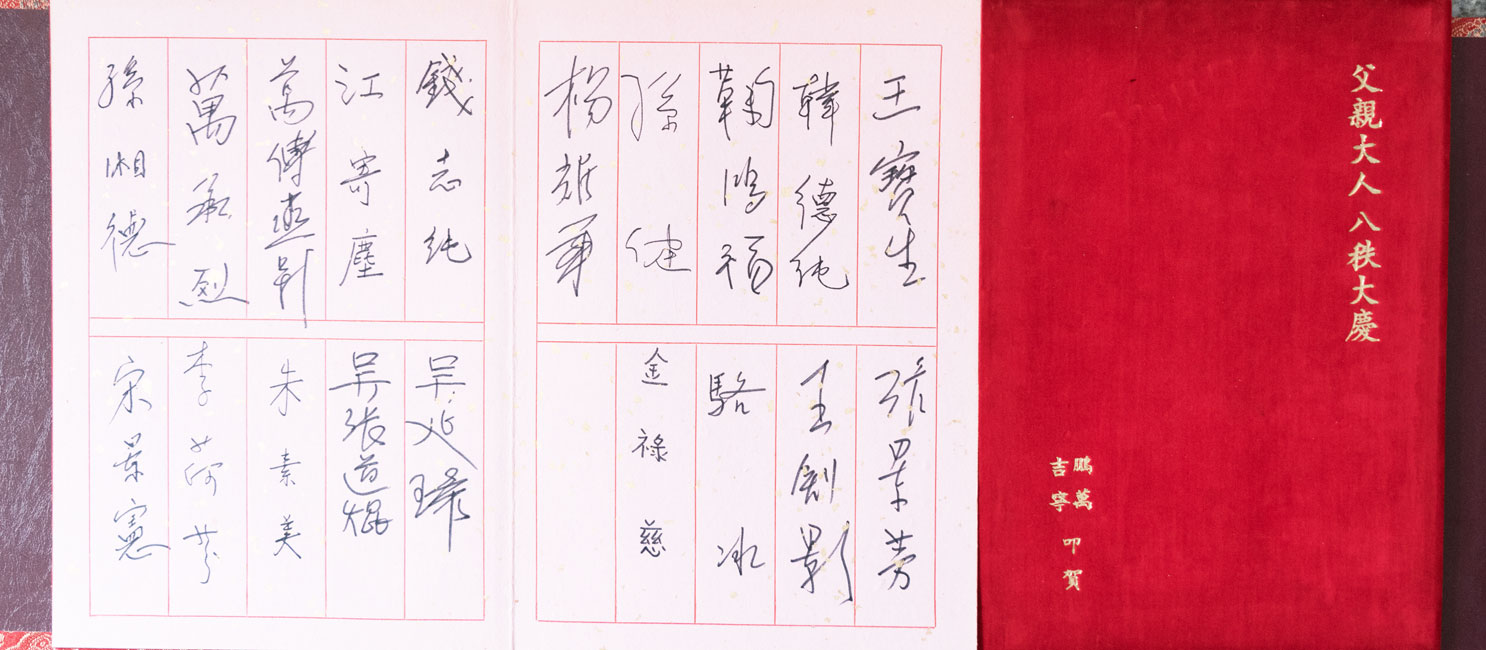 父親大人八秩大慶
鵬萬
吉寧
叩賀
王寶生
韓德純
鞠鴻福
孫健
楊
張景芳
王劍影
駱冰
金祿慈
錢志純
江寄塵
萬傳
萬承烈
孫湘德
吳兆
吳張道焜
朱素美
李荷芬
宋景憲